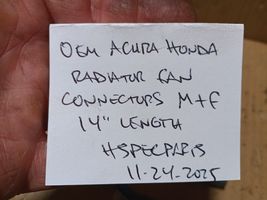 OEM ACURA HONDA
RADIATOR FAN
CONNECTORS M+F
14" LENGTH
HSPECPARTS
11-24-2025